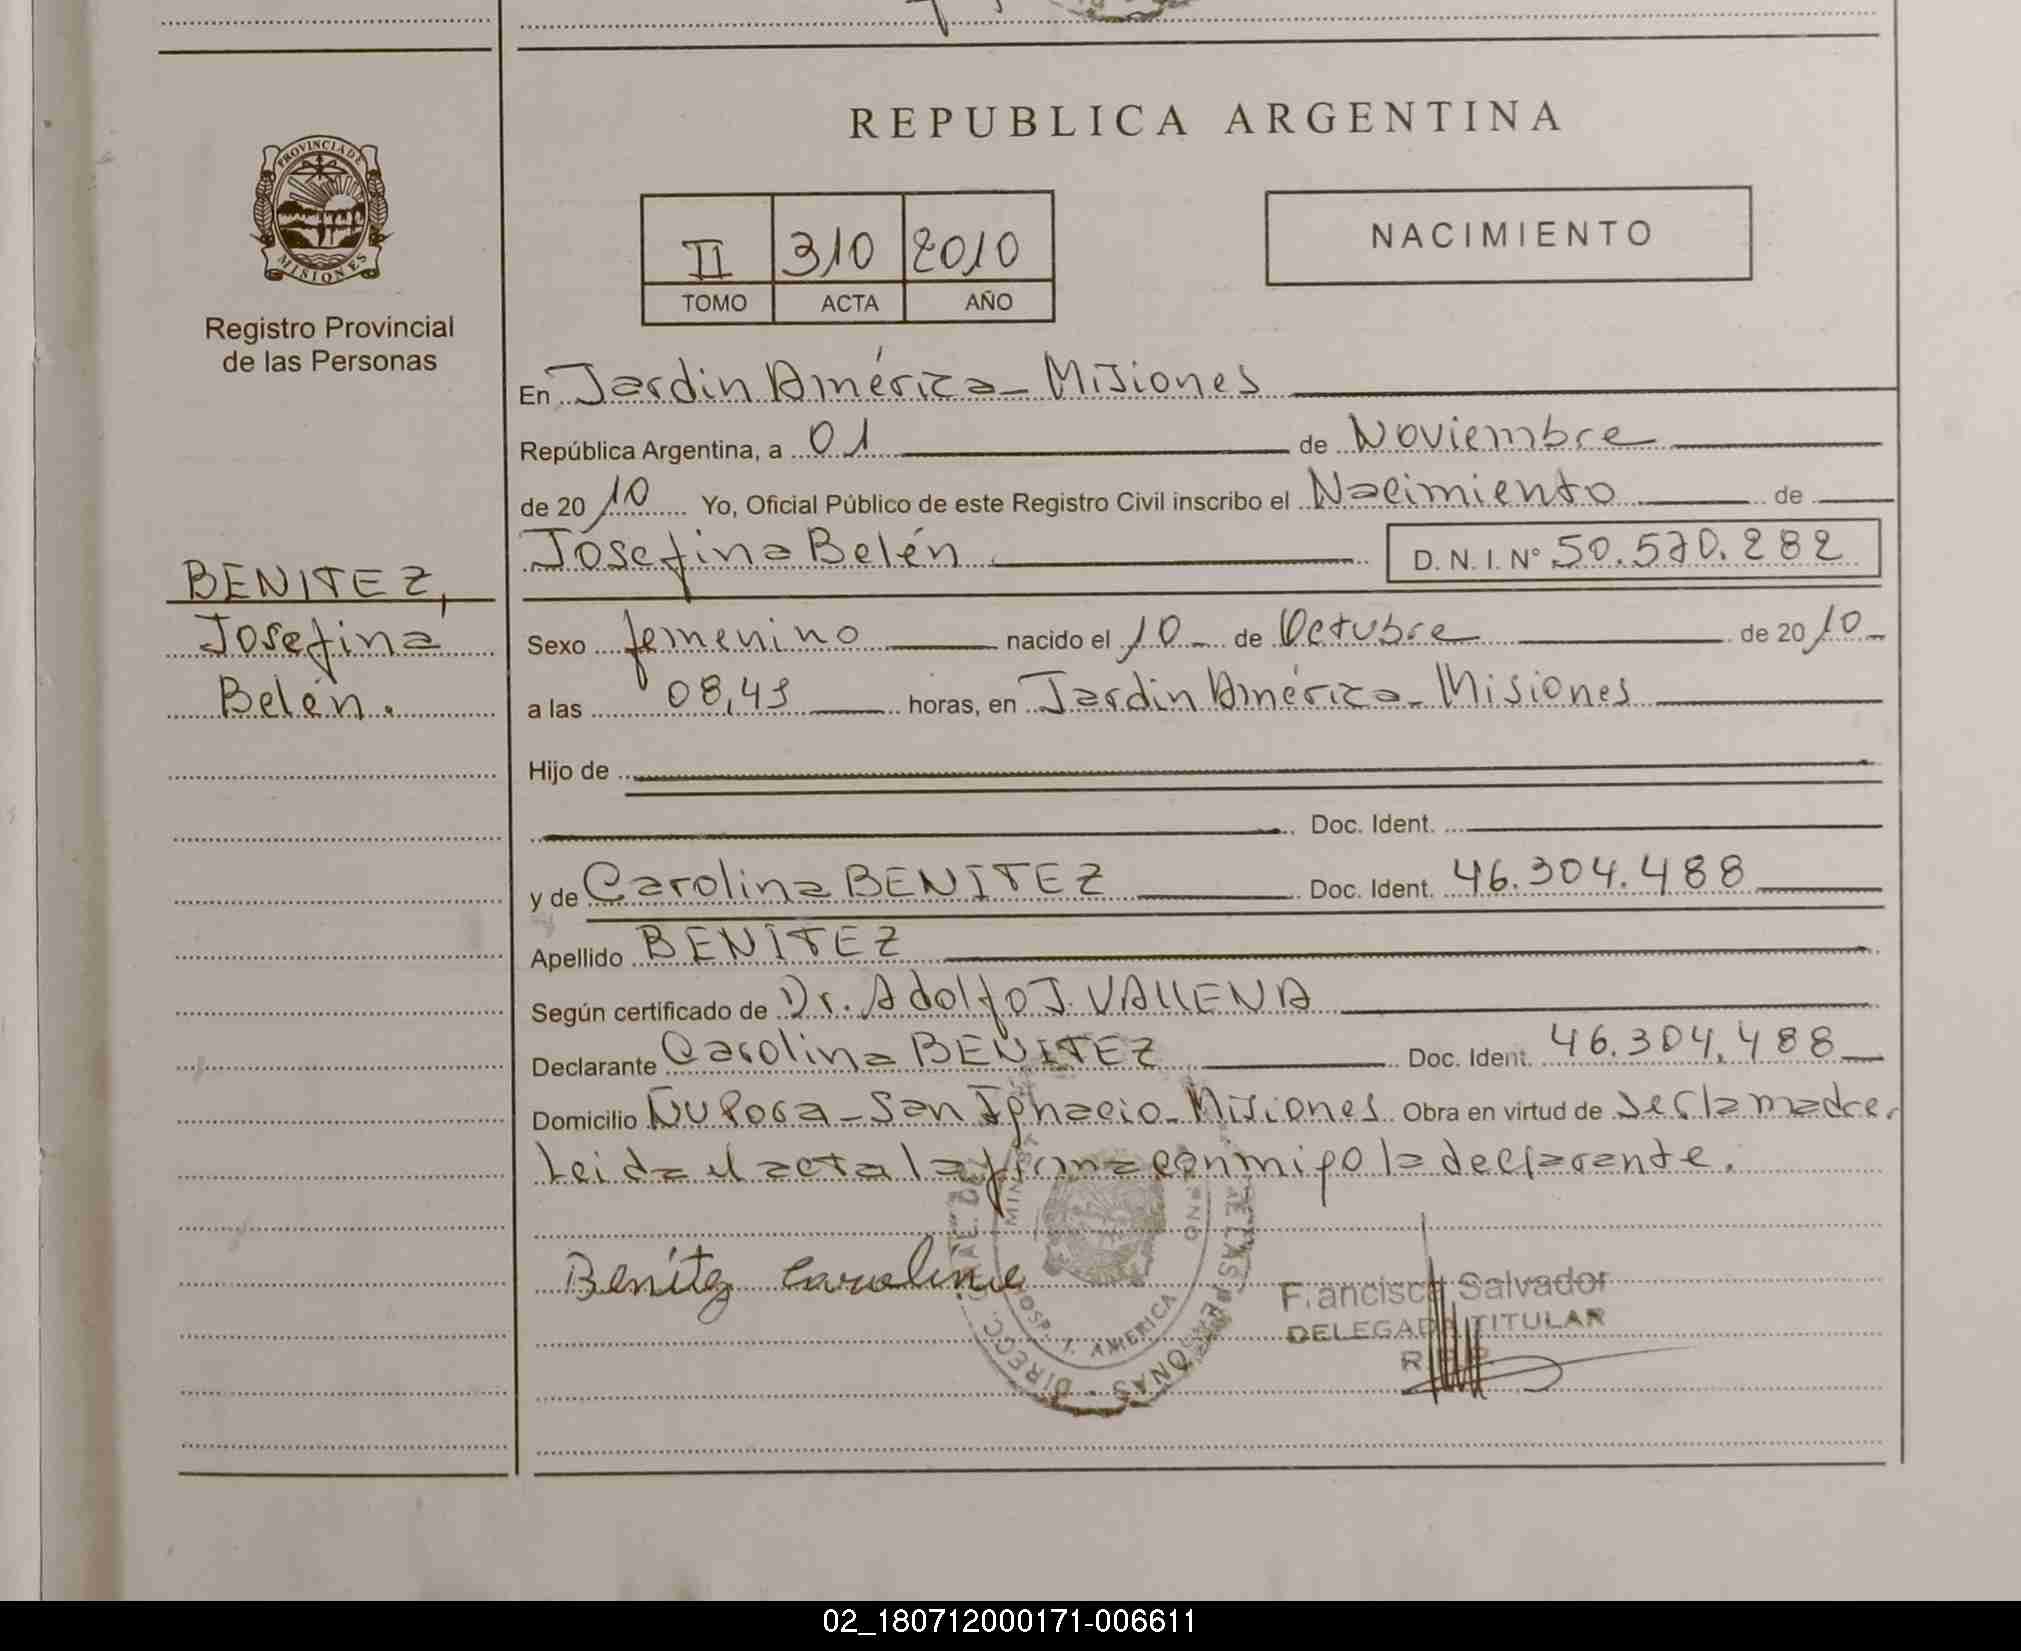 REPUBLICA ARGENTINA
PROVINCIA DE MISIONES
Registro Provincial
de las Personas
II 310 2010
TOMO ACTA AÑO
NACIMIENTO
En Jardin América - Misiones
República Argentina, a 01 de Noviembre
de 2010 Yo, Oficial Público de este Registro Civil inscribo el Nacimiento de
Josefina Belén D. N. I. Nº 50.570.282
BENITEZ,
Josefina
Belén.
Sexo femenino nacido el 10 de Octubre de 2010
a las 08,45 horas, en Jardin América - Misiones
Hijo de
Doc. Ident.
y de Carolina BENITEZ Doc. Ident. 46.304.488
Apellido BENITEZ
Según certificado de Dr. Adolfo J. VALLENA
Declarante Carolina BENITEZ Doc. Ident. 46.304.488
Domicilio Ñu Pora - San Ignacio - Misiones Obra en virtud de ser la madre.
Leida el acta la firma conmigo la declarante.
Benítez Carolina
HOSP. J. AMERICA
DIRECC. DE LAS PERSONAS
Francisca Salvador
DELEGADA TITULAR
02_180712000171-006611